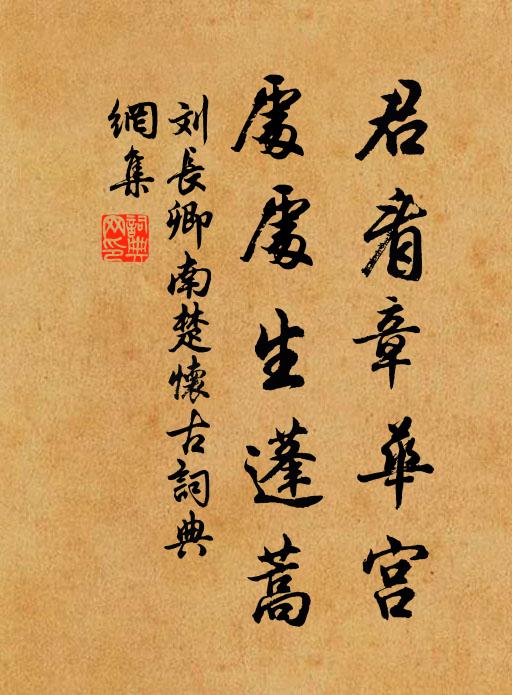 君看章華宮
處處生蓬蒿
刘長卿南楚懷古詞典
網集
詞典
网印